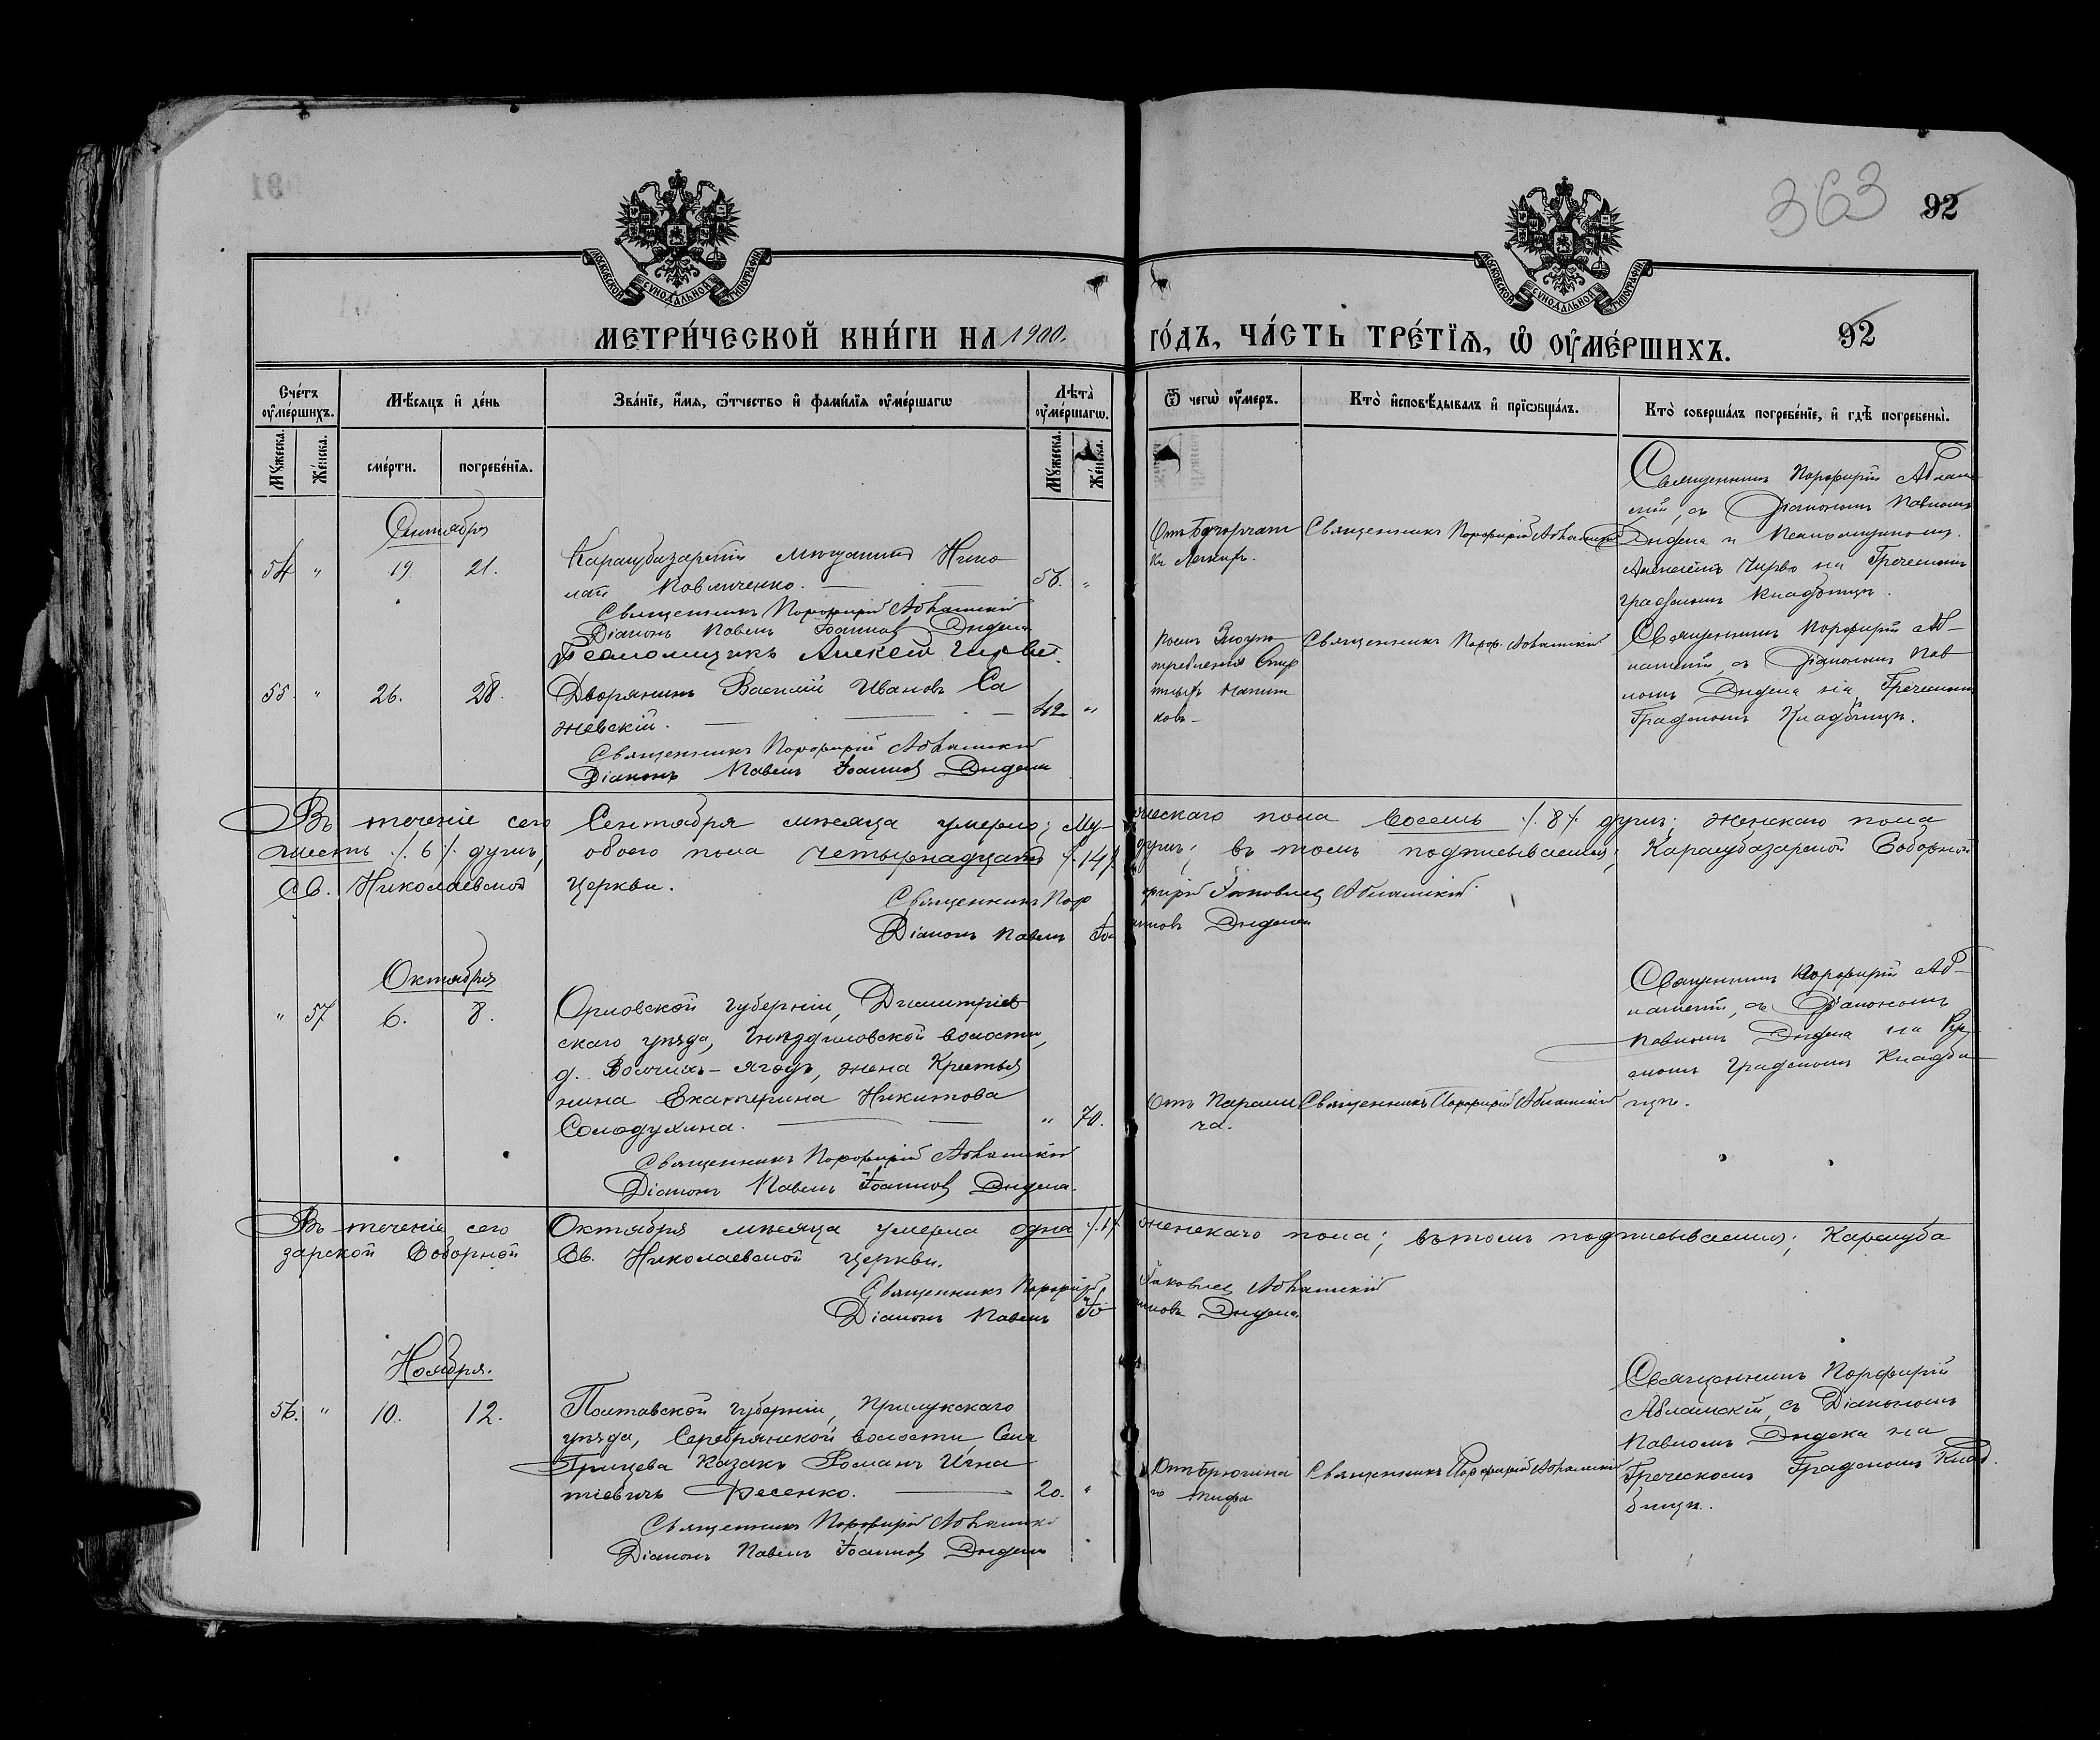 363 92
МОСКОВСКОЙ СѴНОДАЛЬНОЙ ТИПОГРАФІИ
МОСКОВСКОЙ СѴНОДАЛЬНОЙ ТИПОГРАФІИ
МЕТРИ́ЧЕСКОЙ КНИ́ГИ НА 1900. ГО́ДЪ, ЧА́СТЬ ТРЕ́ТЇѦ, Ѡ҆ ОУ҆МЕ́РШИХЪ.
92
Сче́тъ оу҆ме́ршихъ.
Мꙋ́жеска.
Же́нска.
Мѣ́сѧцъ и҆ де́нь
сме́рти.
погребе́нїѧ.
Зва́нїе, и҆́мѧ, ѻ҆́тчество и҆ фами́лїѧ оу҆ме́ршагѡ
Лѣ̀та оу҆ме́ршагѡ.
Мꙋ́жеска.
Же́нска.
Ѿ чегѡ̀ оу҆́меръ.
Кто̀ и҆сповѣ́дывалъ и҆ прїѡбща́лъ.
Кто̀ соверша́лъ погребе́нїе, и҆ гдѣ̀ погребены̀.
Сентября
54 " 19. 21.
Карасубазарскій мѣщанинъ Нико
лай Павличенко. 56. "
Священникъ Порфирій Абламскій
Діаконъ Павелъ Іоанновъ
Псаломщикъ Алексѣй
Отъ
Священникъ Порфирій Абламскій
Священникъ Порфирій Аблам
скій, съ Діакономъ Павломъ
и Псаломщикомъ
Алексѣемъ на Греческомъ
градскомъ кладбищѣ.
55. " 26. 28.
Дворянинъ Василій Ивановъ Са
жевскій. 42 "
Священникъ Порфирій Абламскій
Діаконъ Павелъ Іоанновъ
Послѣ Злоупо
требленія Спир
тныхъ напит
ковъ
Священникъ Порф. Абламскій
Священникъ Порфирій Аб-
ламскій, съ Діакономъ Пав
ломъ на Греческомъ
Градскомъ Кладбищѣ.
Въ теченіе сего Сентября мѣсяца умерло; Му-ческаго пола восемь ./. 8 ./. душъ; женскаго пола
шесть ./. 6 ./. душъ, обоего пола четырнадцать ./. 14 ./. душъ; въ томъ подписываемся; Карасубазарской Соборной
Св. Николаевской Церкви.
Священникъ Порфирій Іаковлев Абламскій
Діаконъ Павелъ Іоанновъ
Октября
" 57 6. 8.
Орловской губерніи, Димитріев
скаго уѣзда, Гнѣздиловской волости,
д. жена Крестья
нина Екатерина Никитова
Солодухина. " 70.
Священникъ Порфирій Абламскій
Діаконъ Павелъ Іоанновъ
Отъ Парали
ча.
Священникъ Порфирій Абламскій
Священникъ Порфирій Аб-
ламскій, съ Діакономъ
Павломъ на
Градскомъ Кладби
щѣ.
Въ теченіе сего Октября мѣсяца умерла одна ./. 1 ./. женскаго пола; въ томъ подписываемся; Карасуба
зарской Соборной Св. Николаевской Церкви.
Священникъ Порфирій Іаковлев Абламскій
Діаконъ Павелъ Іоанновъ
Ноября.
56. " 10. 12.
Полтавской губерніи, Прилукскаго
уѣзда, Серебрянской волости Села
Грицева Казакъ Романъ Игна
тіевичъ Фесенко. 20. "
Священникъ Порфирій Абламскі
Діаконъ Павелъ Іоанновъ
Отъ Брюшна
го тифа
Священникъ Порфирій Абламскій
Священникъ Порфирій
Абламскій, съ Діакономъ
Павломъ на
Греческомъ Градскомъ Клад
бищѣ.